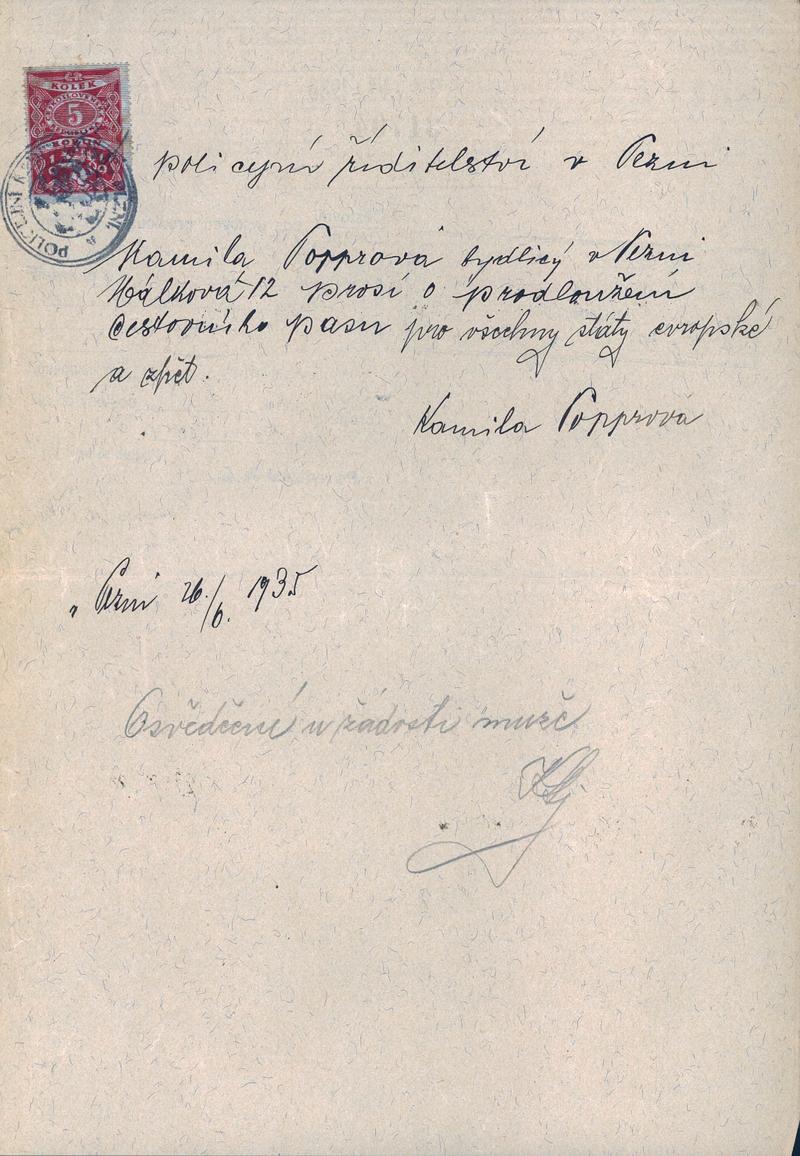 KOLEK
ČESKOSLOVENSKÁ
5
KORUN
policejní ředitelství v Plzni
Kamila Popprová bydlicý v Plzni
Hálková 12 prosí o prodloužení
cestovního pasu pro všechny státy evropské
a zpět.
Kamila Popprová
v Plzni 26./6. 1935
Osvědčení u žádosti muže